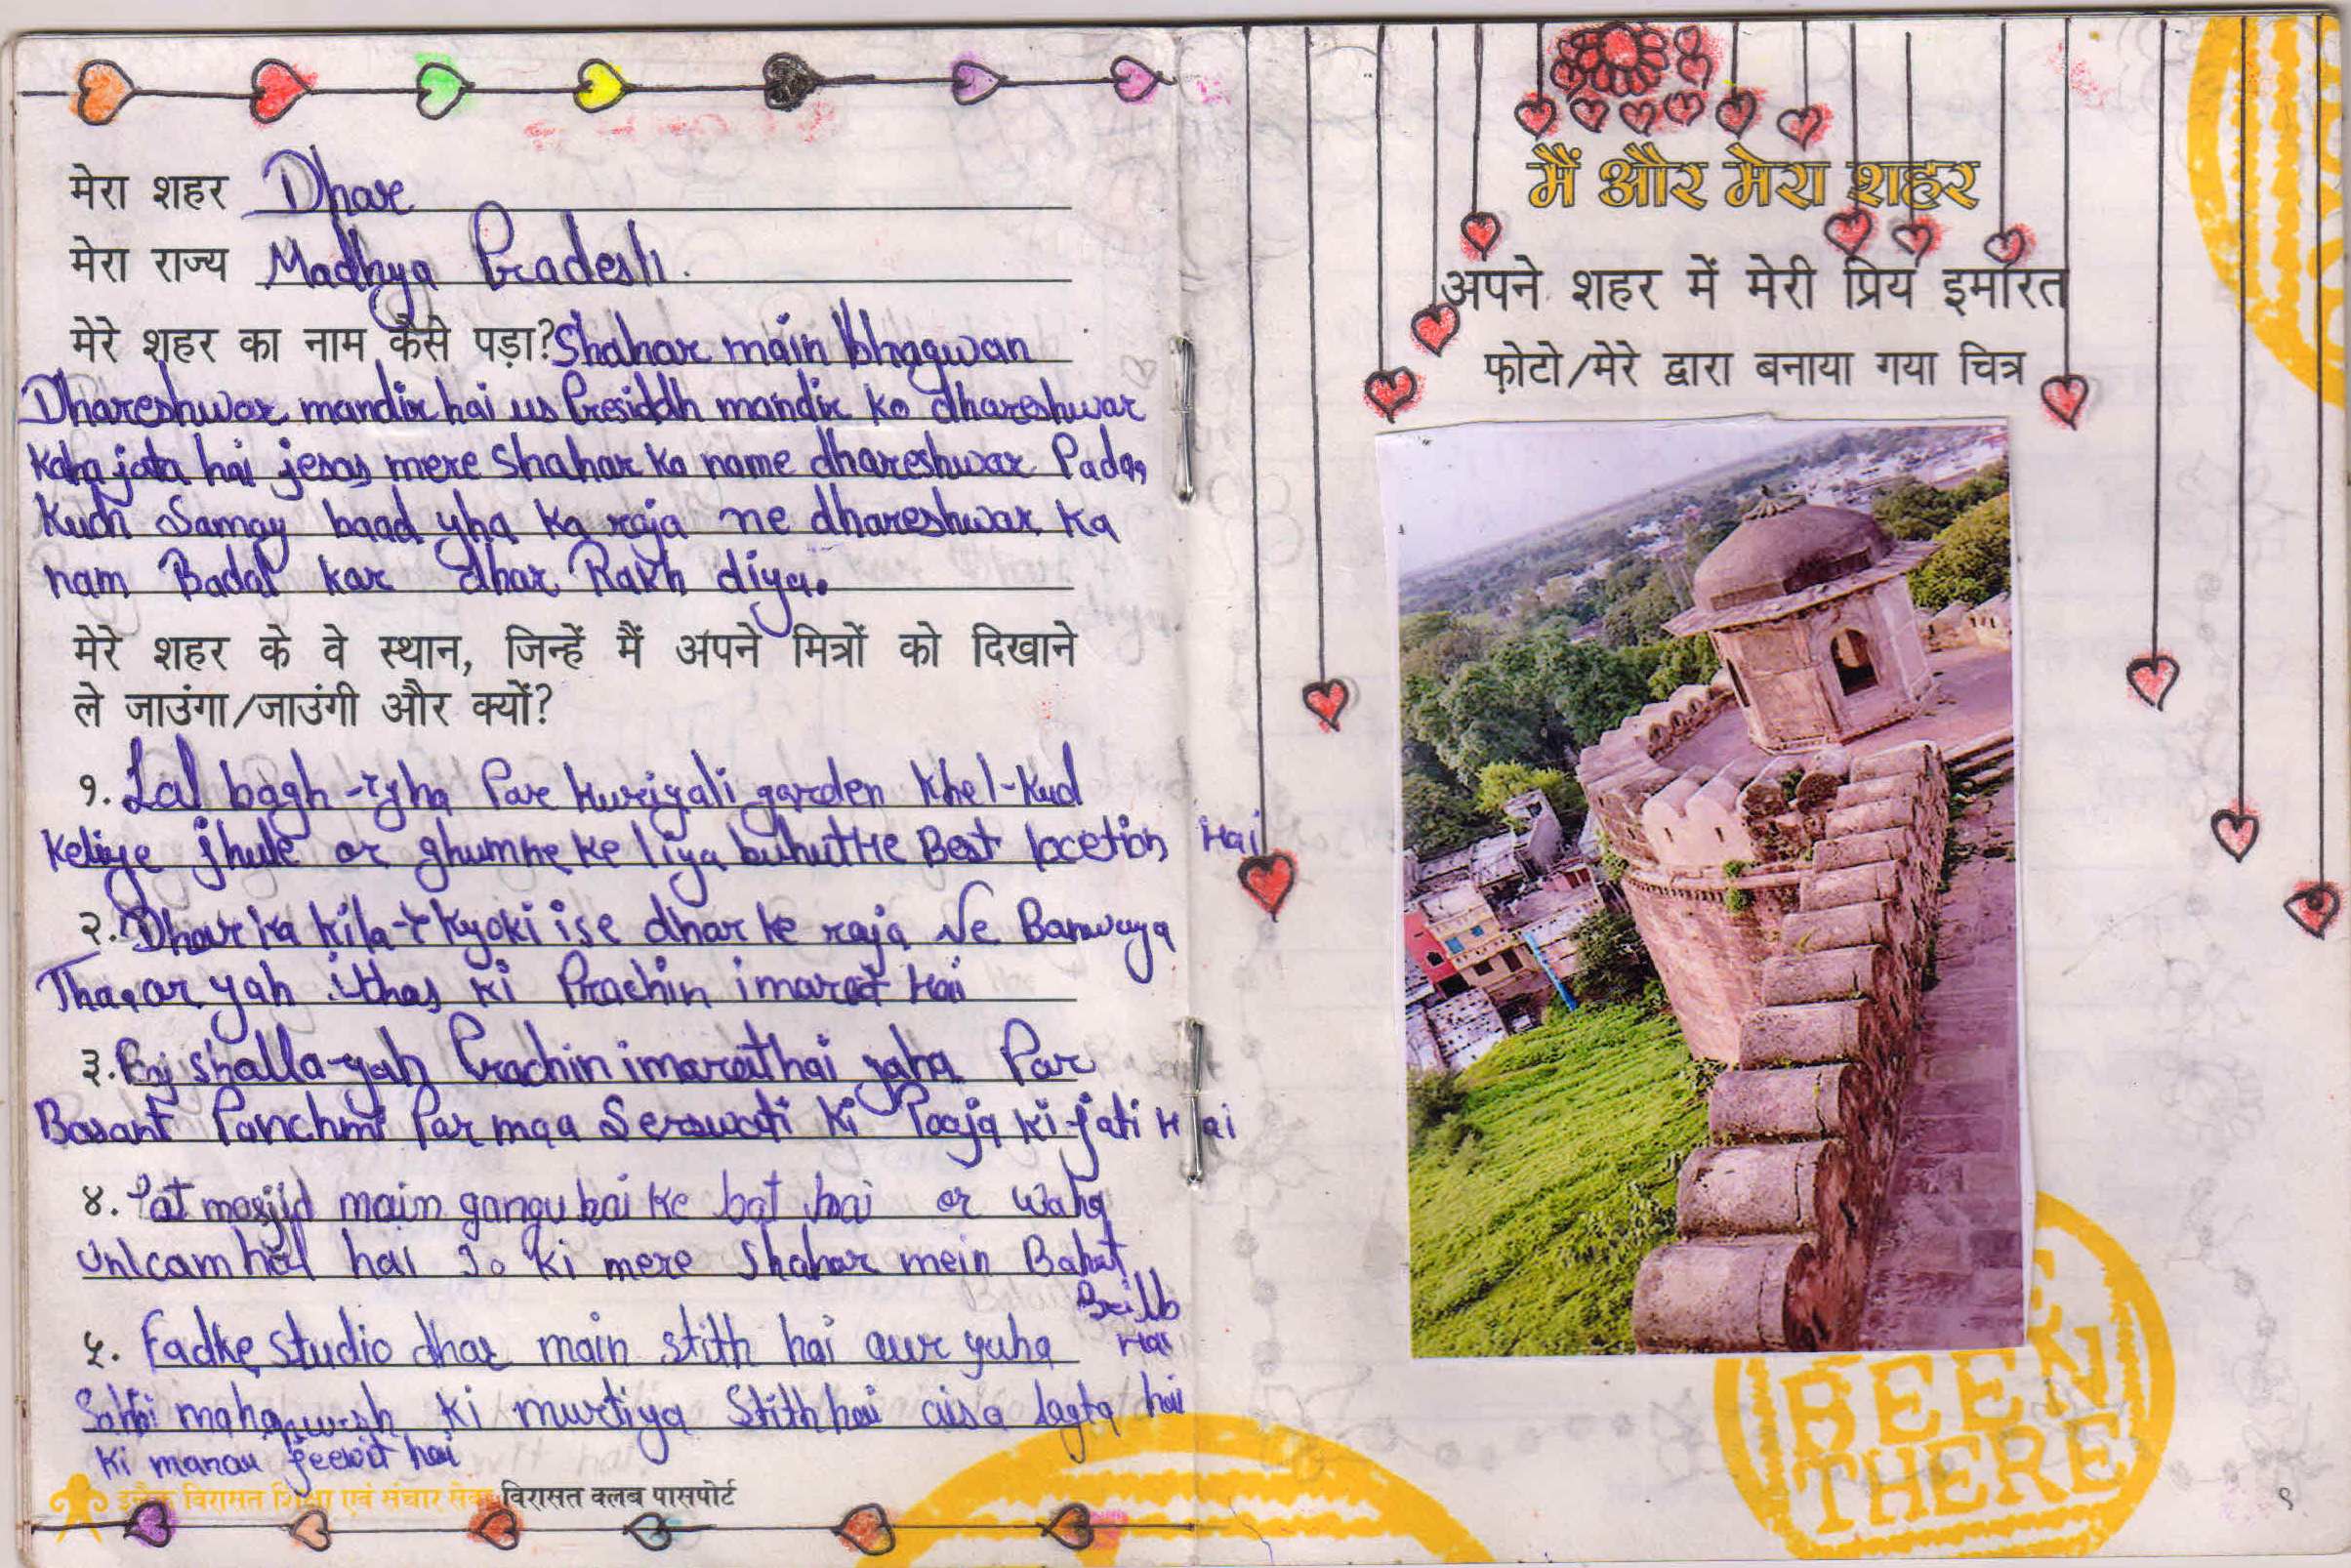 मेरा शहर Dhar
मेरा राज्य Madhya Pradesh.
मेरे शहर का नाम कैसे पड़ा? Shahar main bhagwan
Dhareshwar mandir hai us Presiddh mandir ko dhareshwar
Kaha jata hai jesas mere shahar ka name dhareshwar Pada,
Kuch Samay baad yha ka raja ne dhareshwar ka
nam Badal kar dhar Rakh diya.
मेरे शहर के वे स्थान, जिन्हें मैं अपने मित्रों को दिखाने
ले जाउंगा/जाउंगी और क्यों?
१. Lal bagh - yha Par huriyali garden khel-kud
Keliye jhule or ghumne ke liya buhut He Best locetion Hai
२. Dhar ka kila - kyoki ise dhar ke raja Ne Banwaya
Tha, or yah ithas ki Prachin imarat Hai
३. shalla-yah Prachin imarat hai yaha Par
Basant Panchmi Par maa Serswati ki Pooja ki jati Hai
४. Lat masjid main gangu bai ke bat hai or waha
hai Jo ki mere Shahar mein Bahat
Hai
५. Fadke studio dhar main stith hai aur yaha
Sabhi ki murtiya Stith hai aisa lagta hai
ki manau jeewit hai
इन्टैक विरासत शिक्षा एवं संचार सेवा विरासत क्लब पासपोर्ट
मैं और मेरा शहर
अपने शहर में मेरी प्रिय इमारत
फ़ोटो/मेरे द्वारा बनाया गया चित्र
BEEN
THERE
९